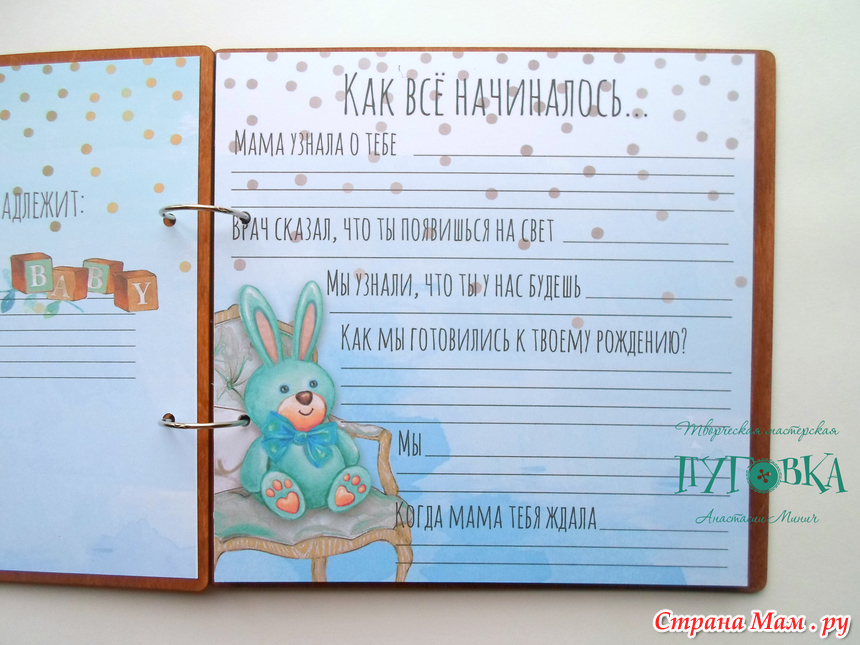 АДЛЕЖИТ:
BABY
Как всё начиналось...
Мама узнала о тебе
Врач сказал, что ты появишься на свет
Мы узнали, что ты у нас будешь
Как мы готовились к твоему рождению?
Мы
Когда мама тебя ждала
Творческая мастерская
ПУГОВКА
Анастасии Минич
Страна Мам.ру